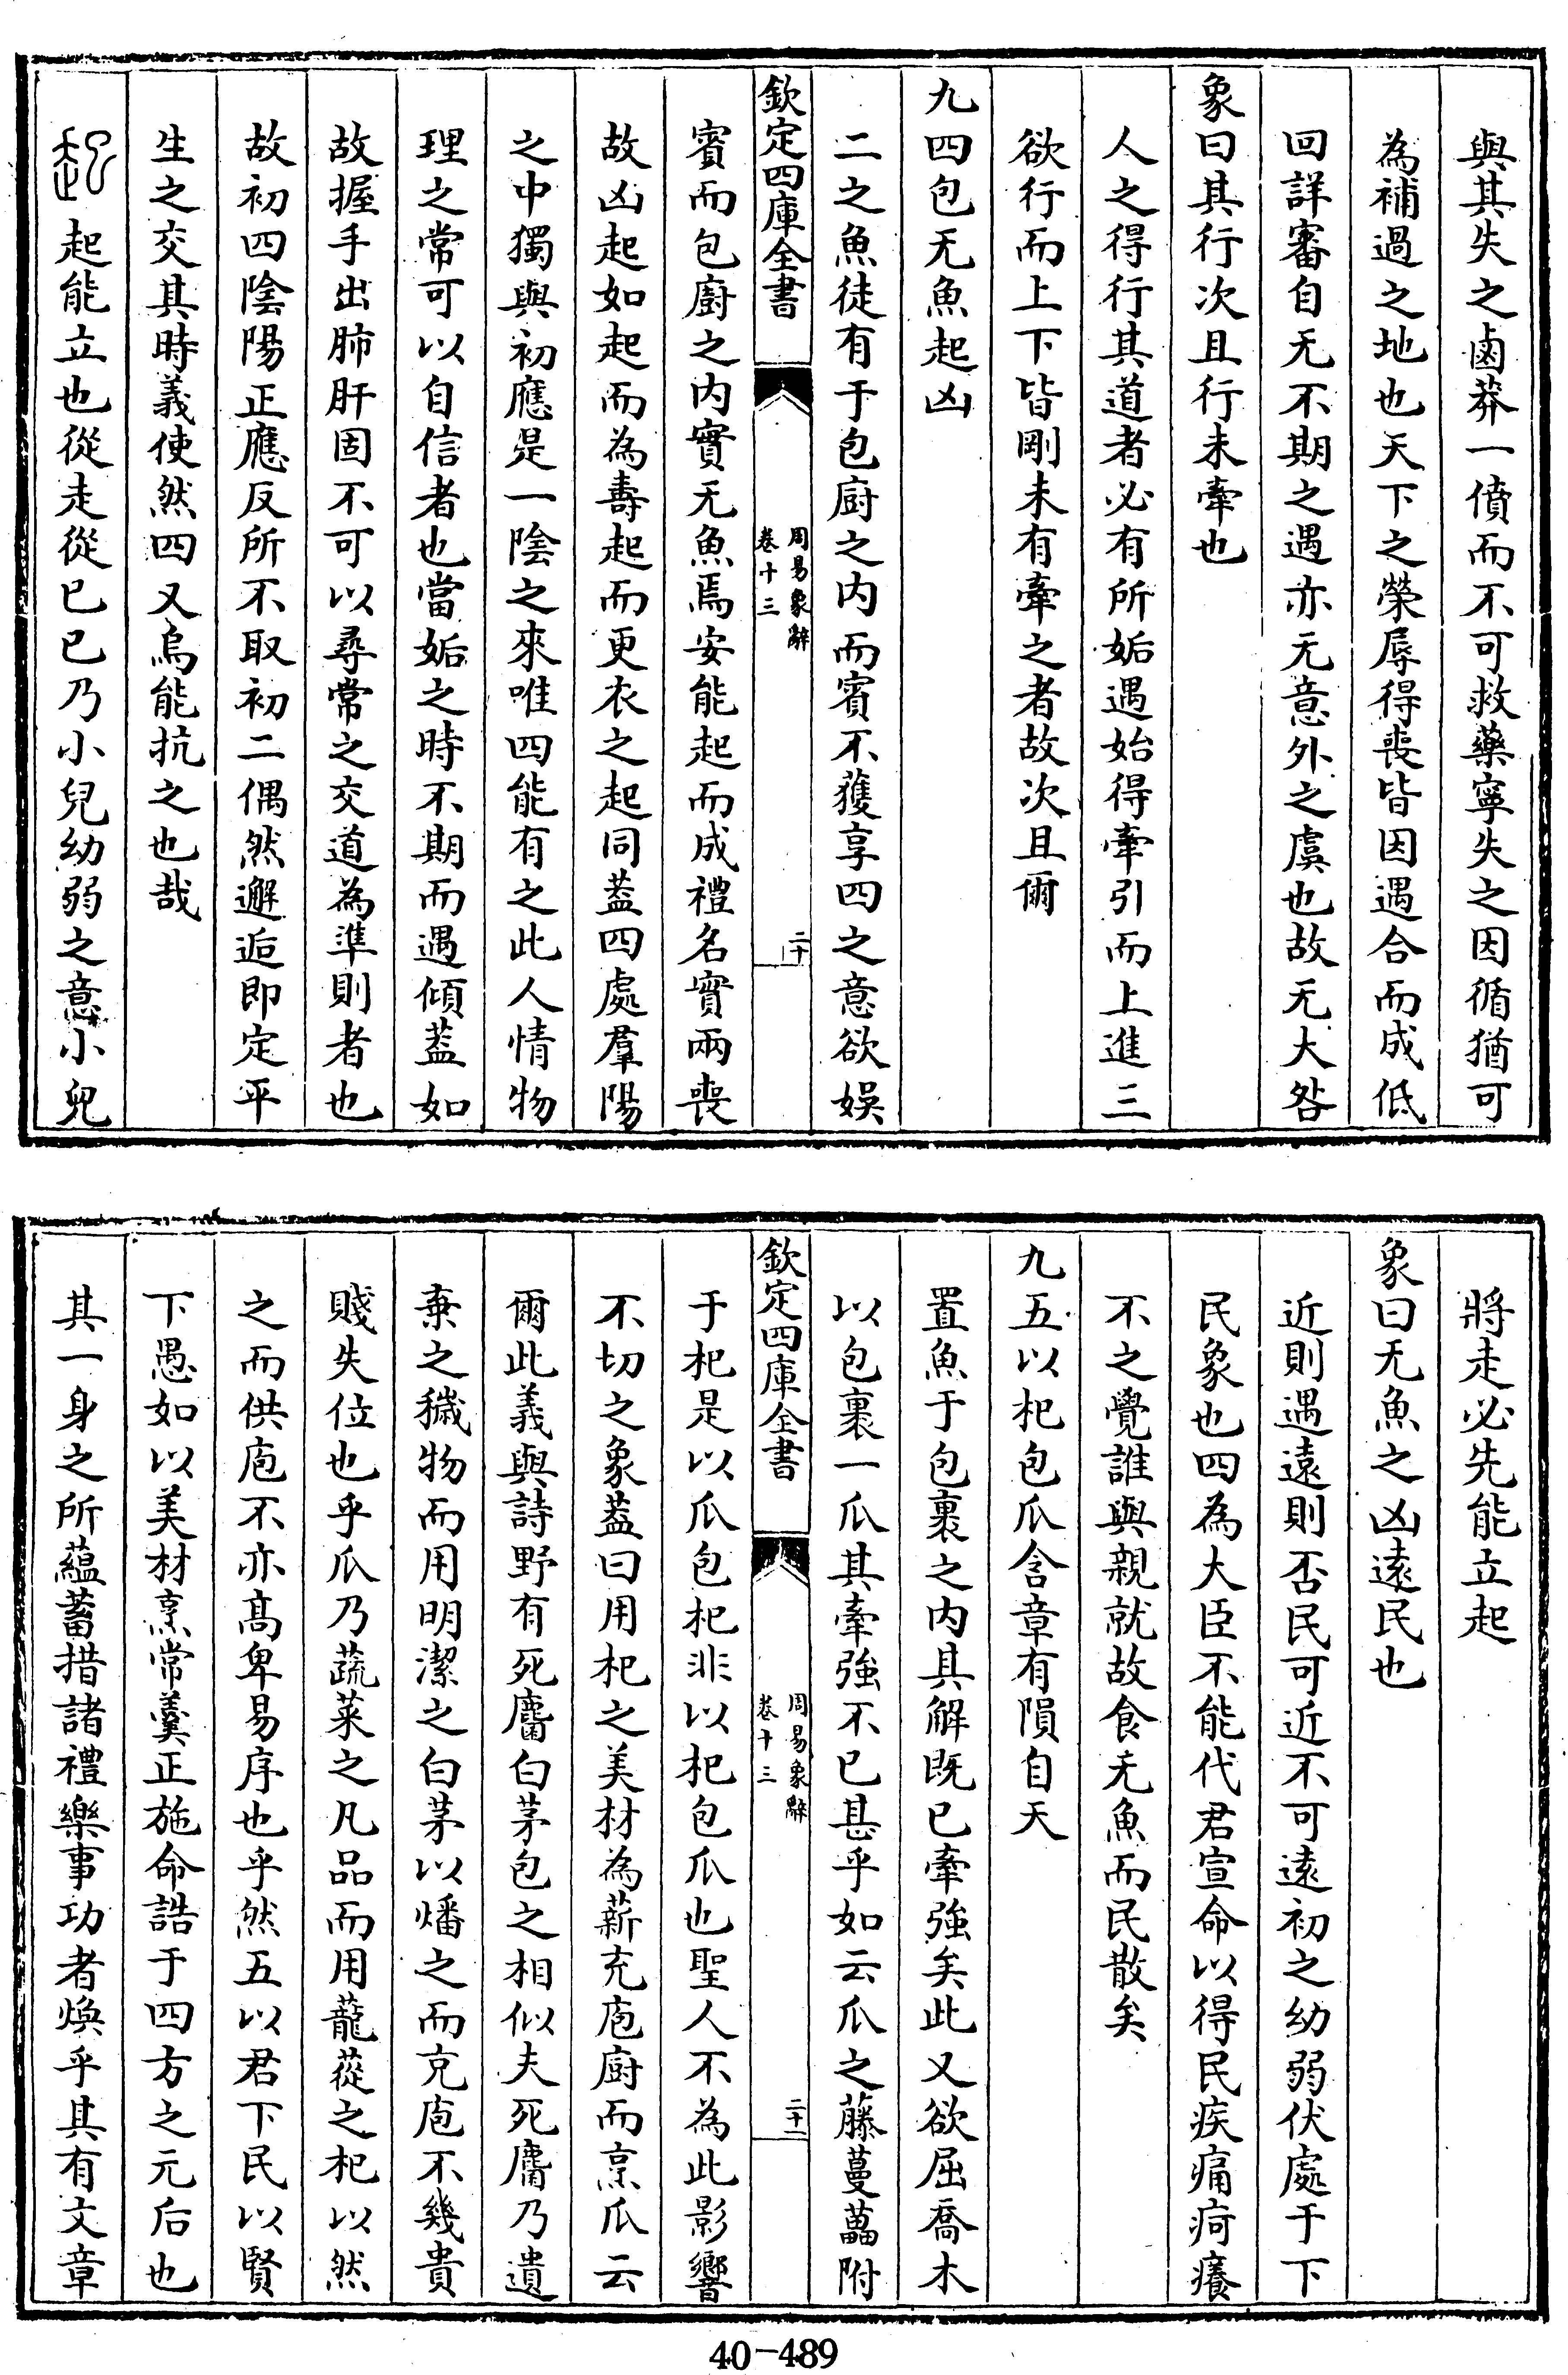 與其失之鹵莽一僨而不可救藥寧失之因循猶可
為補過之地也天下之榮辱得喪皆因遇合而成低
回詳審自无不期之遇亦无意外之虞也故无大咎
象曰其行次且行未牽也
人之得行其道者必有所姤遇始得牽引而上進三
欲行而上下皆剛未有牽之者故次且爾
九四包无魚起凶
二之魚徒有于包廚之内而賓不獲享四之意欲娛
欽定四庫全書
周易象辭
卷十三
二十
賓而包廚之内實无魚焉安能起而成禮名實兩喪
故凶起如起而為壽起而更衣之起同葢四處羣陽
之中獨與初應是一陰之來唯四能有之此人情物
理之常可以自信者也當姤之時不期而遇傾葢如
故握手出肺肝固不可以尋常之交道為準則者也
故初四陰陽正應反所不取初二偶然邂逅即定平
生之交其時義使然四又烏能抗之也哉
起能立也從走從巳巳乃小兒幼弱之意小兒
將走必先能立起
象曰无魚之凶遠民也
近則遇遠則否民可近不可遠初之幼弱伏處于下
民象也四為大臣不能代君宣命以得民疾痛疴癢
不之覺誰與親就故食无魚而民散矣
九五以杞包瓜含章有隕自天
置魚于包裹之内其解既已牽強矣此又欲屈喬木
以包裹一瓜其牽強不已甚乎如云瓜之藤蔓藟附
欽定四庫全書
周易象辭
卷十三
二十一
于杞是以瓜包杞非以杞包瓜也聖人不為此影響
不切之象葢曰用杞之美材為薪充庖廚而烹瓜云
爾此義與詩野有死麕白茅包之相似夫死麕乃遺
棄之穢物而用明潔之白茅以燔之而充庖不幾貴
賤失位也乎瓜乃蔬菜之凡品而用蘢蓯之杞以然
之而供庖不亦髙卑易序也乎然五以君下民以賢
下愚如以美材烹常羹正施命誥于四方之元后也
其一身之所蘊蓄措諸禮樂事功者煥乎其有文章
40-489